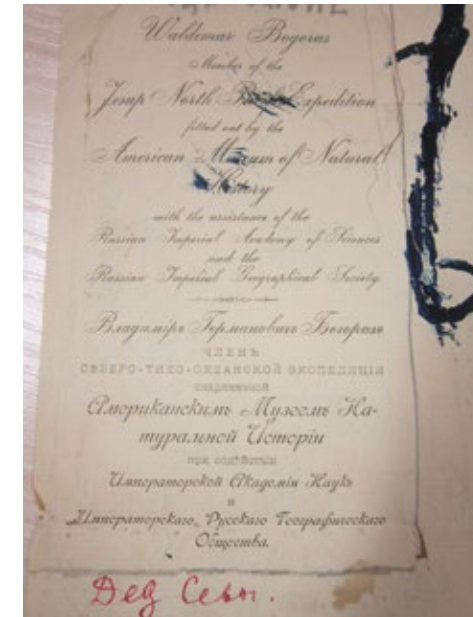 Waldemar Bogoras
Member of the
Jesup North Expedition
fitted out by the
American Museum of Natural
History
with the assistance of the
Russian Imperial Academy of Sciences
and the
Russian Imperial Geographical Society.
Владимiръ Германовичъ Богоразъ
ЧЛЕНЪ
СѢВЕРО-ТИХО-ОКЕАНСКОЙ ЭКСПЕДИЦIИ
снаряженной
Американскимъ Музеемъ На-
туральной Исторiи
при содѣйствiи
Императорской Академiи Наукъ
и
Императорскаго Русскаго Географическаго
Общества.
Дед Севы.